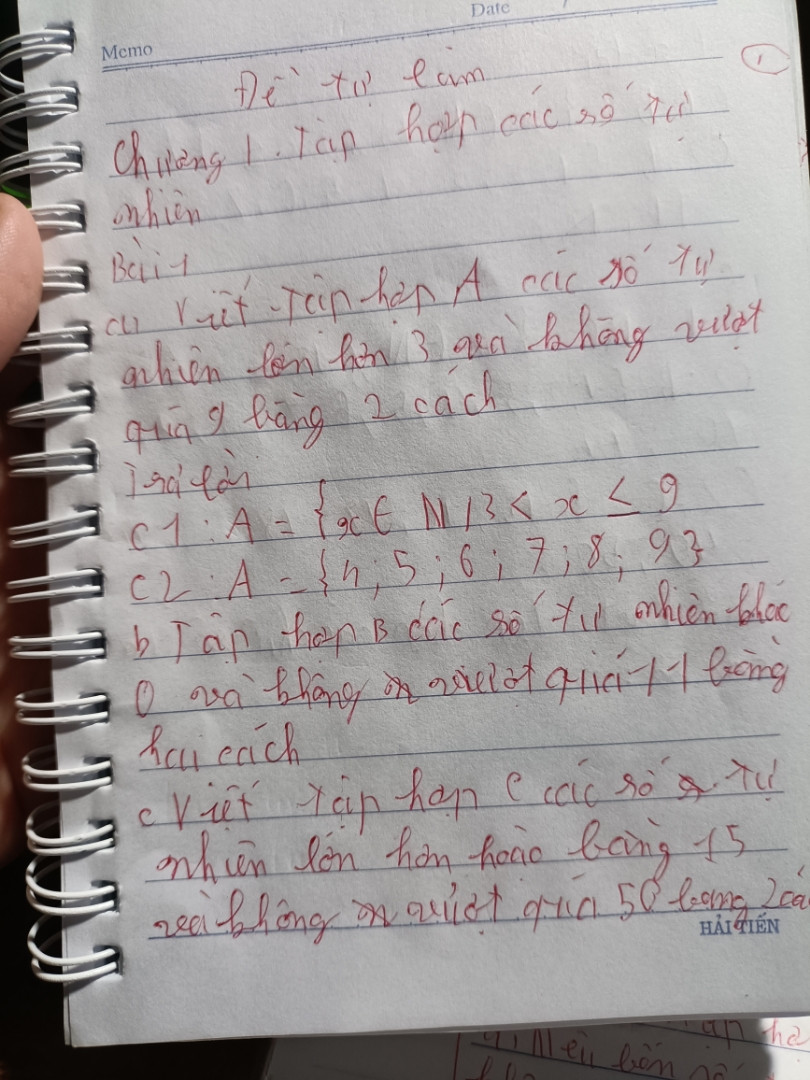 Date
Memo
1
Đề tự làm
Chương 1. Tập hợp các số tự
nhiên
Bài 1
a Viết tập hợp A các số tự
nhiên lớn hơn 3 và không vượt
quá 9 bằng 2 cách
Trả lời
C1 : A = {x ∈ N / 3 < x ≤ 9
C2 : A = {4; 5; 6; 7; 8; 9}
b Tập hợp B các số tự nhiên khác
0 và không vượt quá 11 bằng
hai cách
c Viết tập hợp C các số tự
nhiên lớn hơn hoặc bằng 15
và không vượt quá 50 bằng 2 cá
HẢI TIẾN